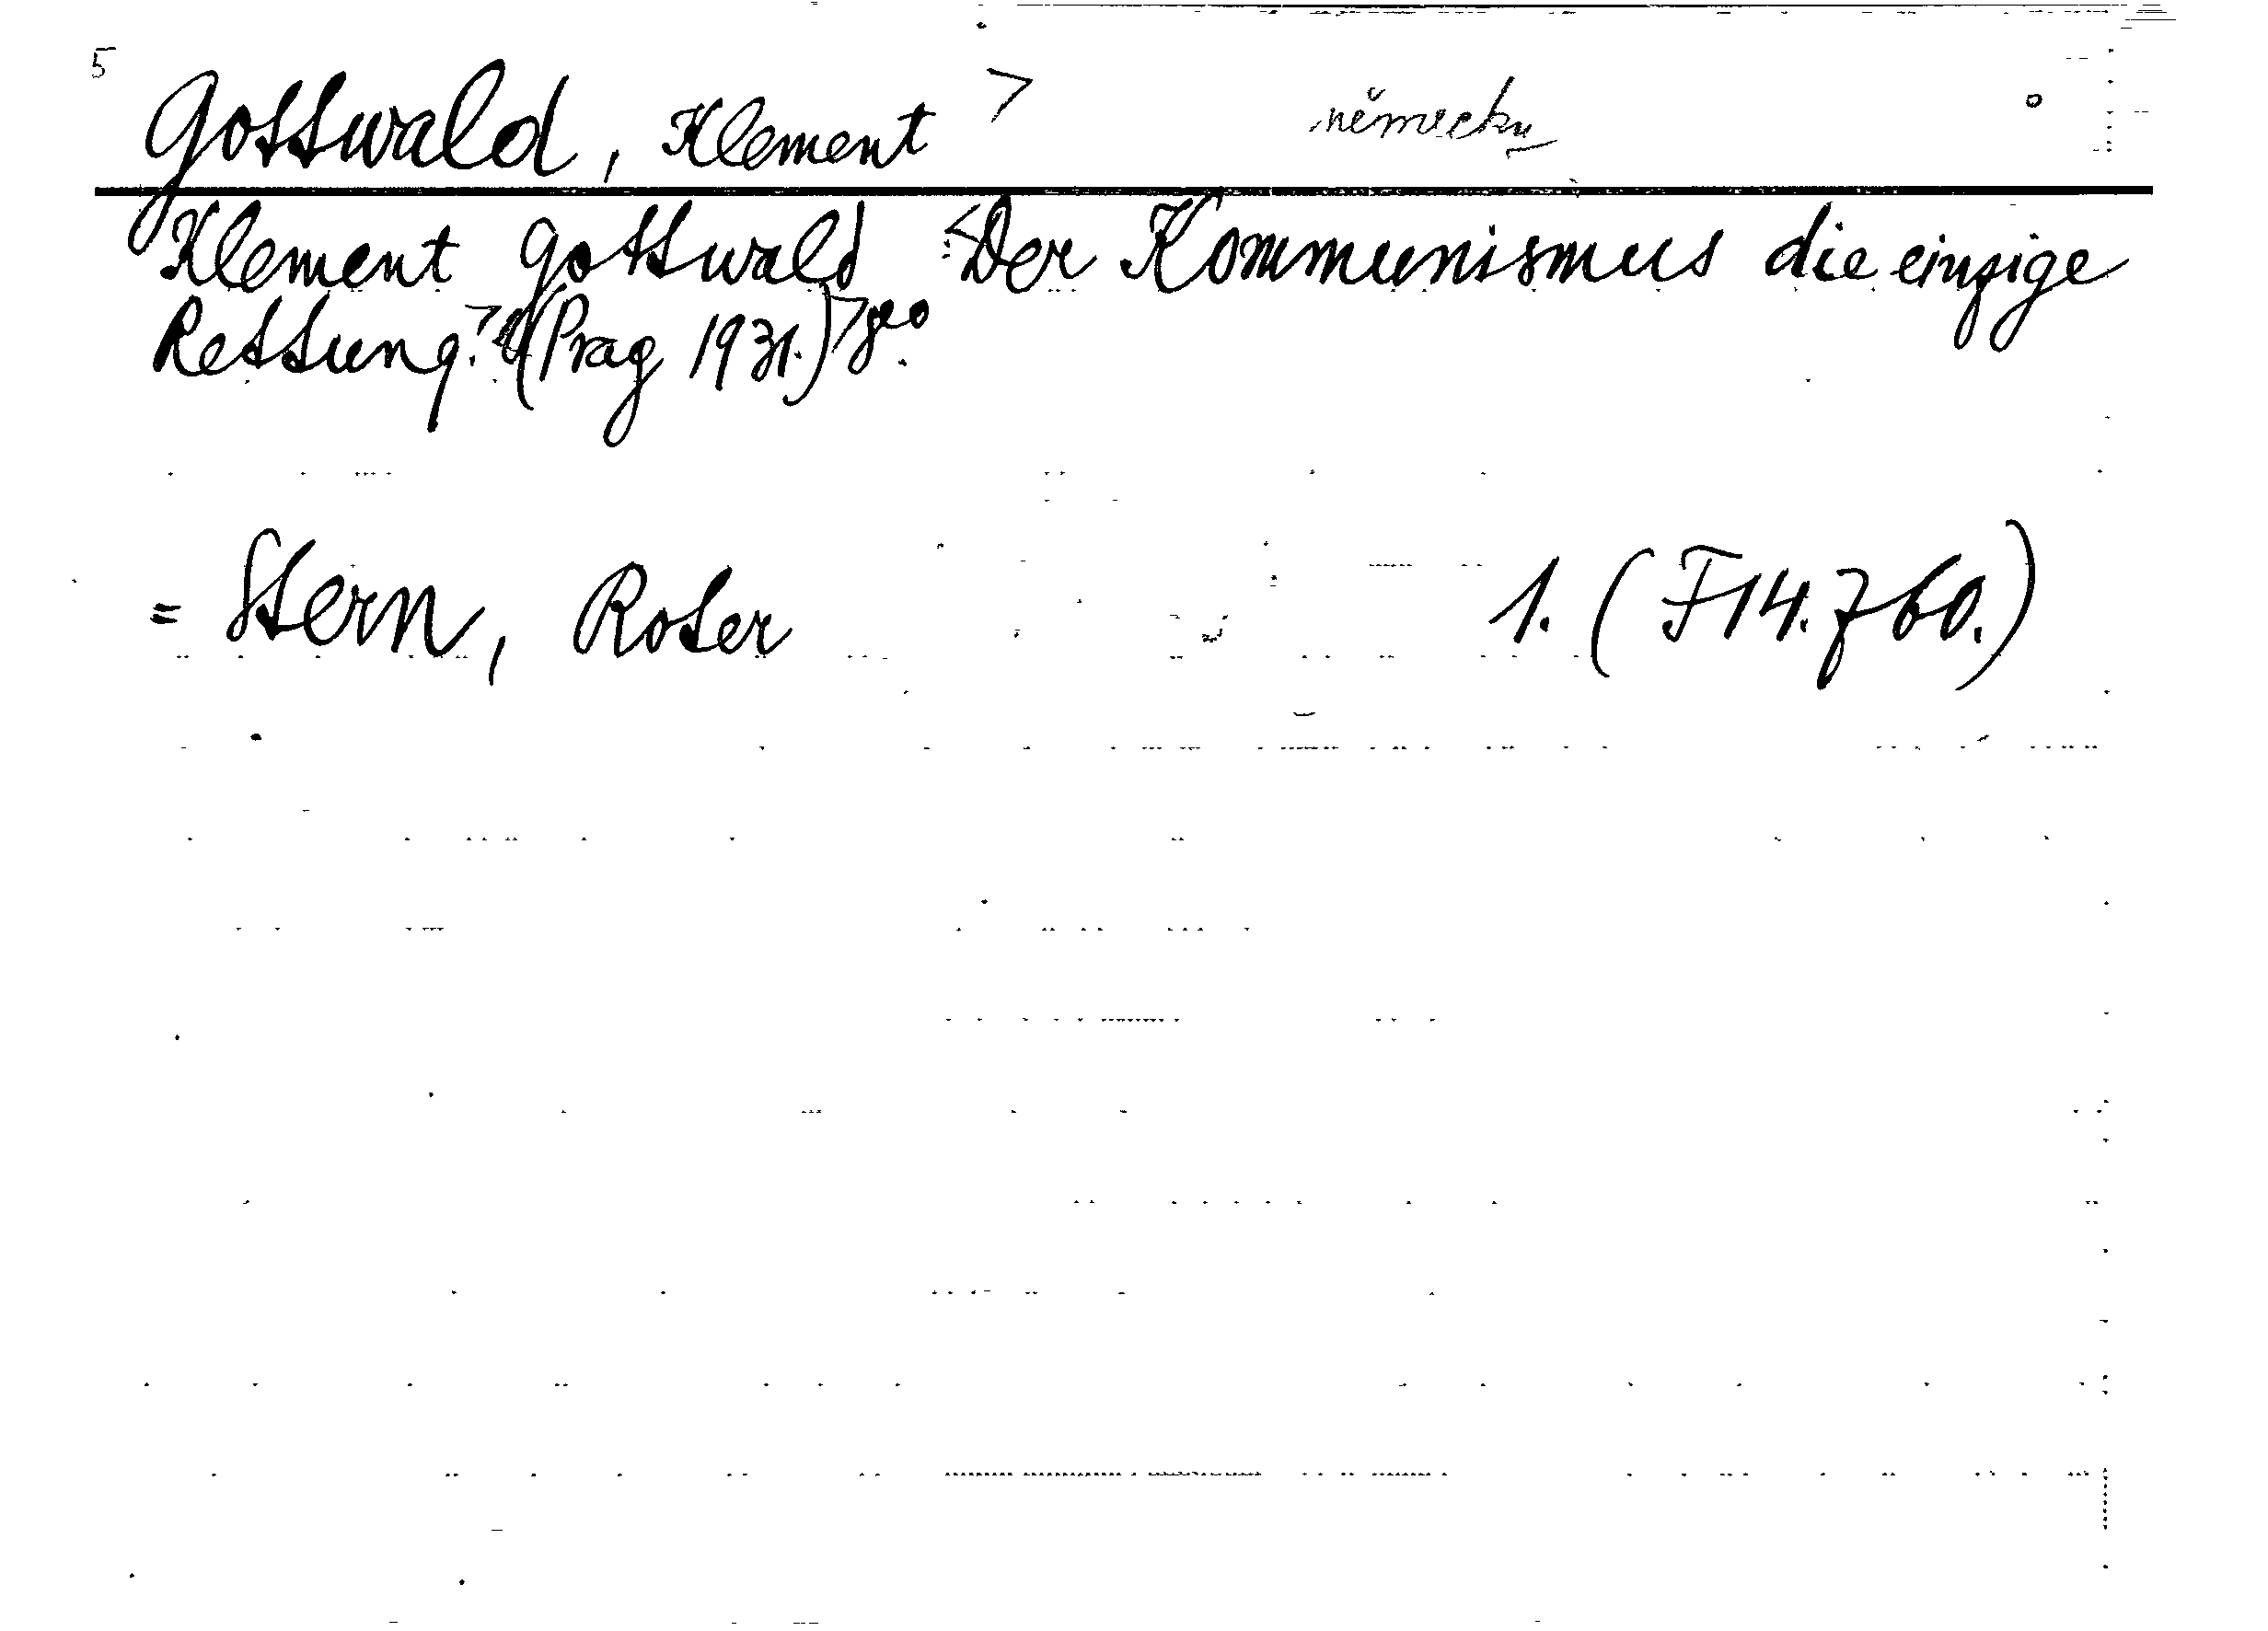 5
Gottwald, Klement >
německy
Klement Gottwald <Der Kommunismus die einzige
Rettung.> (Prag 1931.)> 8°.
= Stern, Roter 1. (F14.760.)